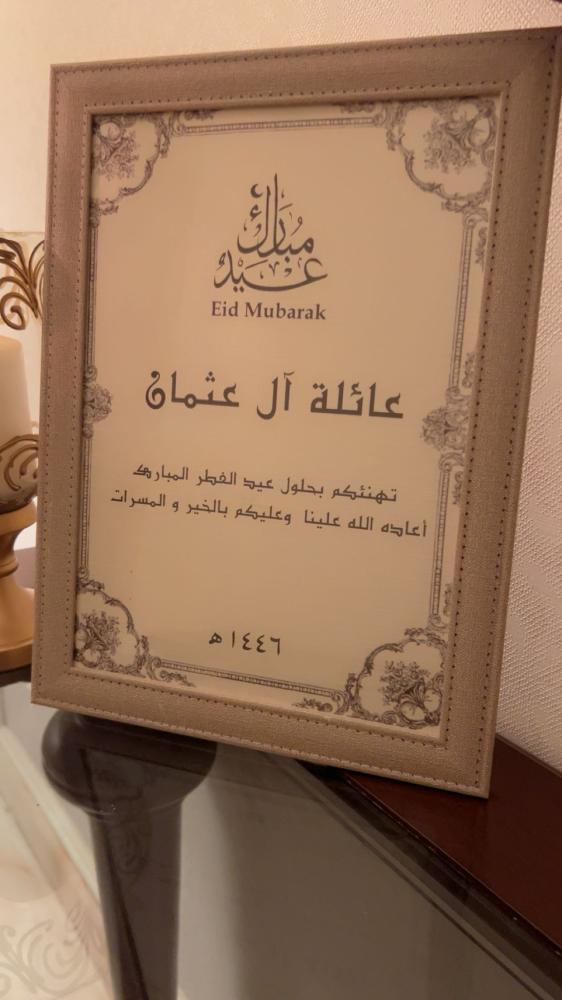 عيد مبارك
Eid Mubarak
عائلة آل عثمان
تهنئكم بحلول عيد الفطر المبارك
أعاده الله علينا وعليكم بالخير و المسرات
١٤٤٦ ه